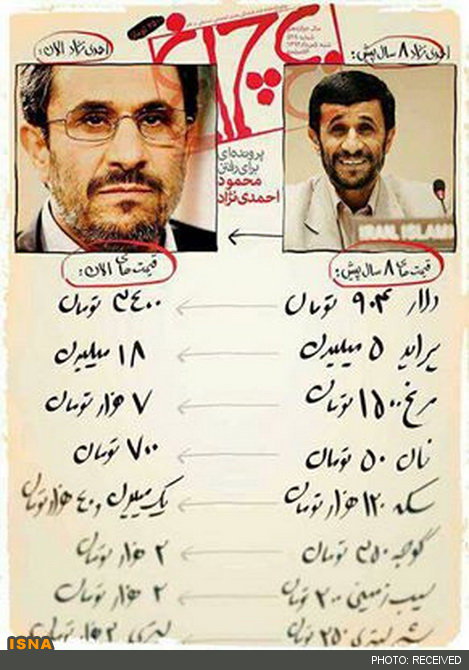 چلچراغ
احمدی نژاد ۸ سال پیش:
احمدی نژاد الان:
پرونده‌ای
برای رفتن
محمود
احمدی نژاد
IRAN ISLAM
قیمت های ۸ سال پیش:
قیمت های الان:
دلار ۹۰۴ تومان
۳۴۰۰ تومان
پراید ۵ میلیون
۱۸ میلیون
مرغ ۱۵۰۰ تومان
۷ هزار تومان
نان ۵۰ تومان
۷۰۰ تومان
سکه ۱۲۰ هزار تومان
یک میلیون و ۴۰ هزار تومان
گوجه ۳۵۰ تومان
۲ هزار تومان
سیب زمینی ۳۰۰ تومان
۲ هزار تومان
شیر لیتری ۲۵۰ تومان
لیتری ۳ هزار تومان
ISNA
PHOTO: RECEIVED